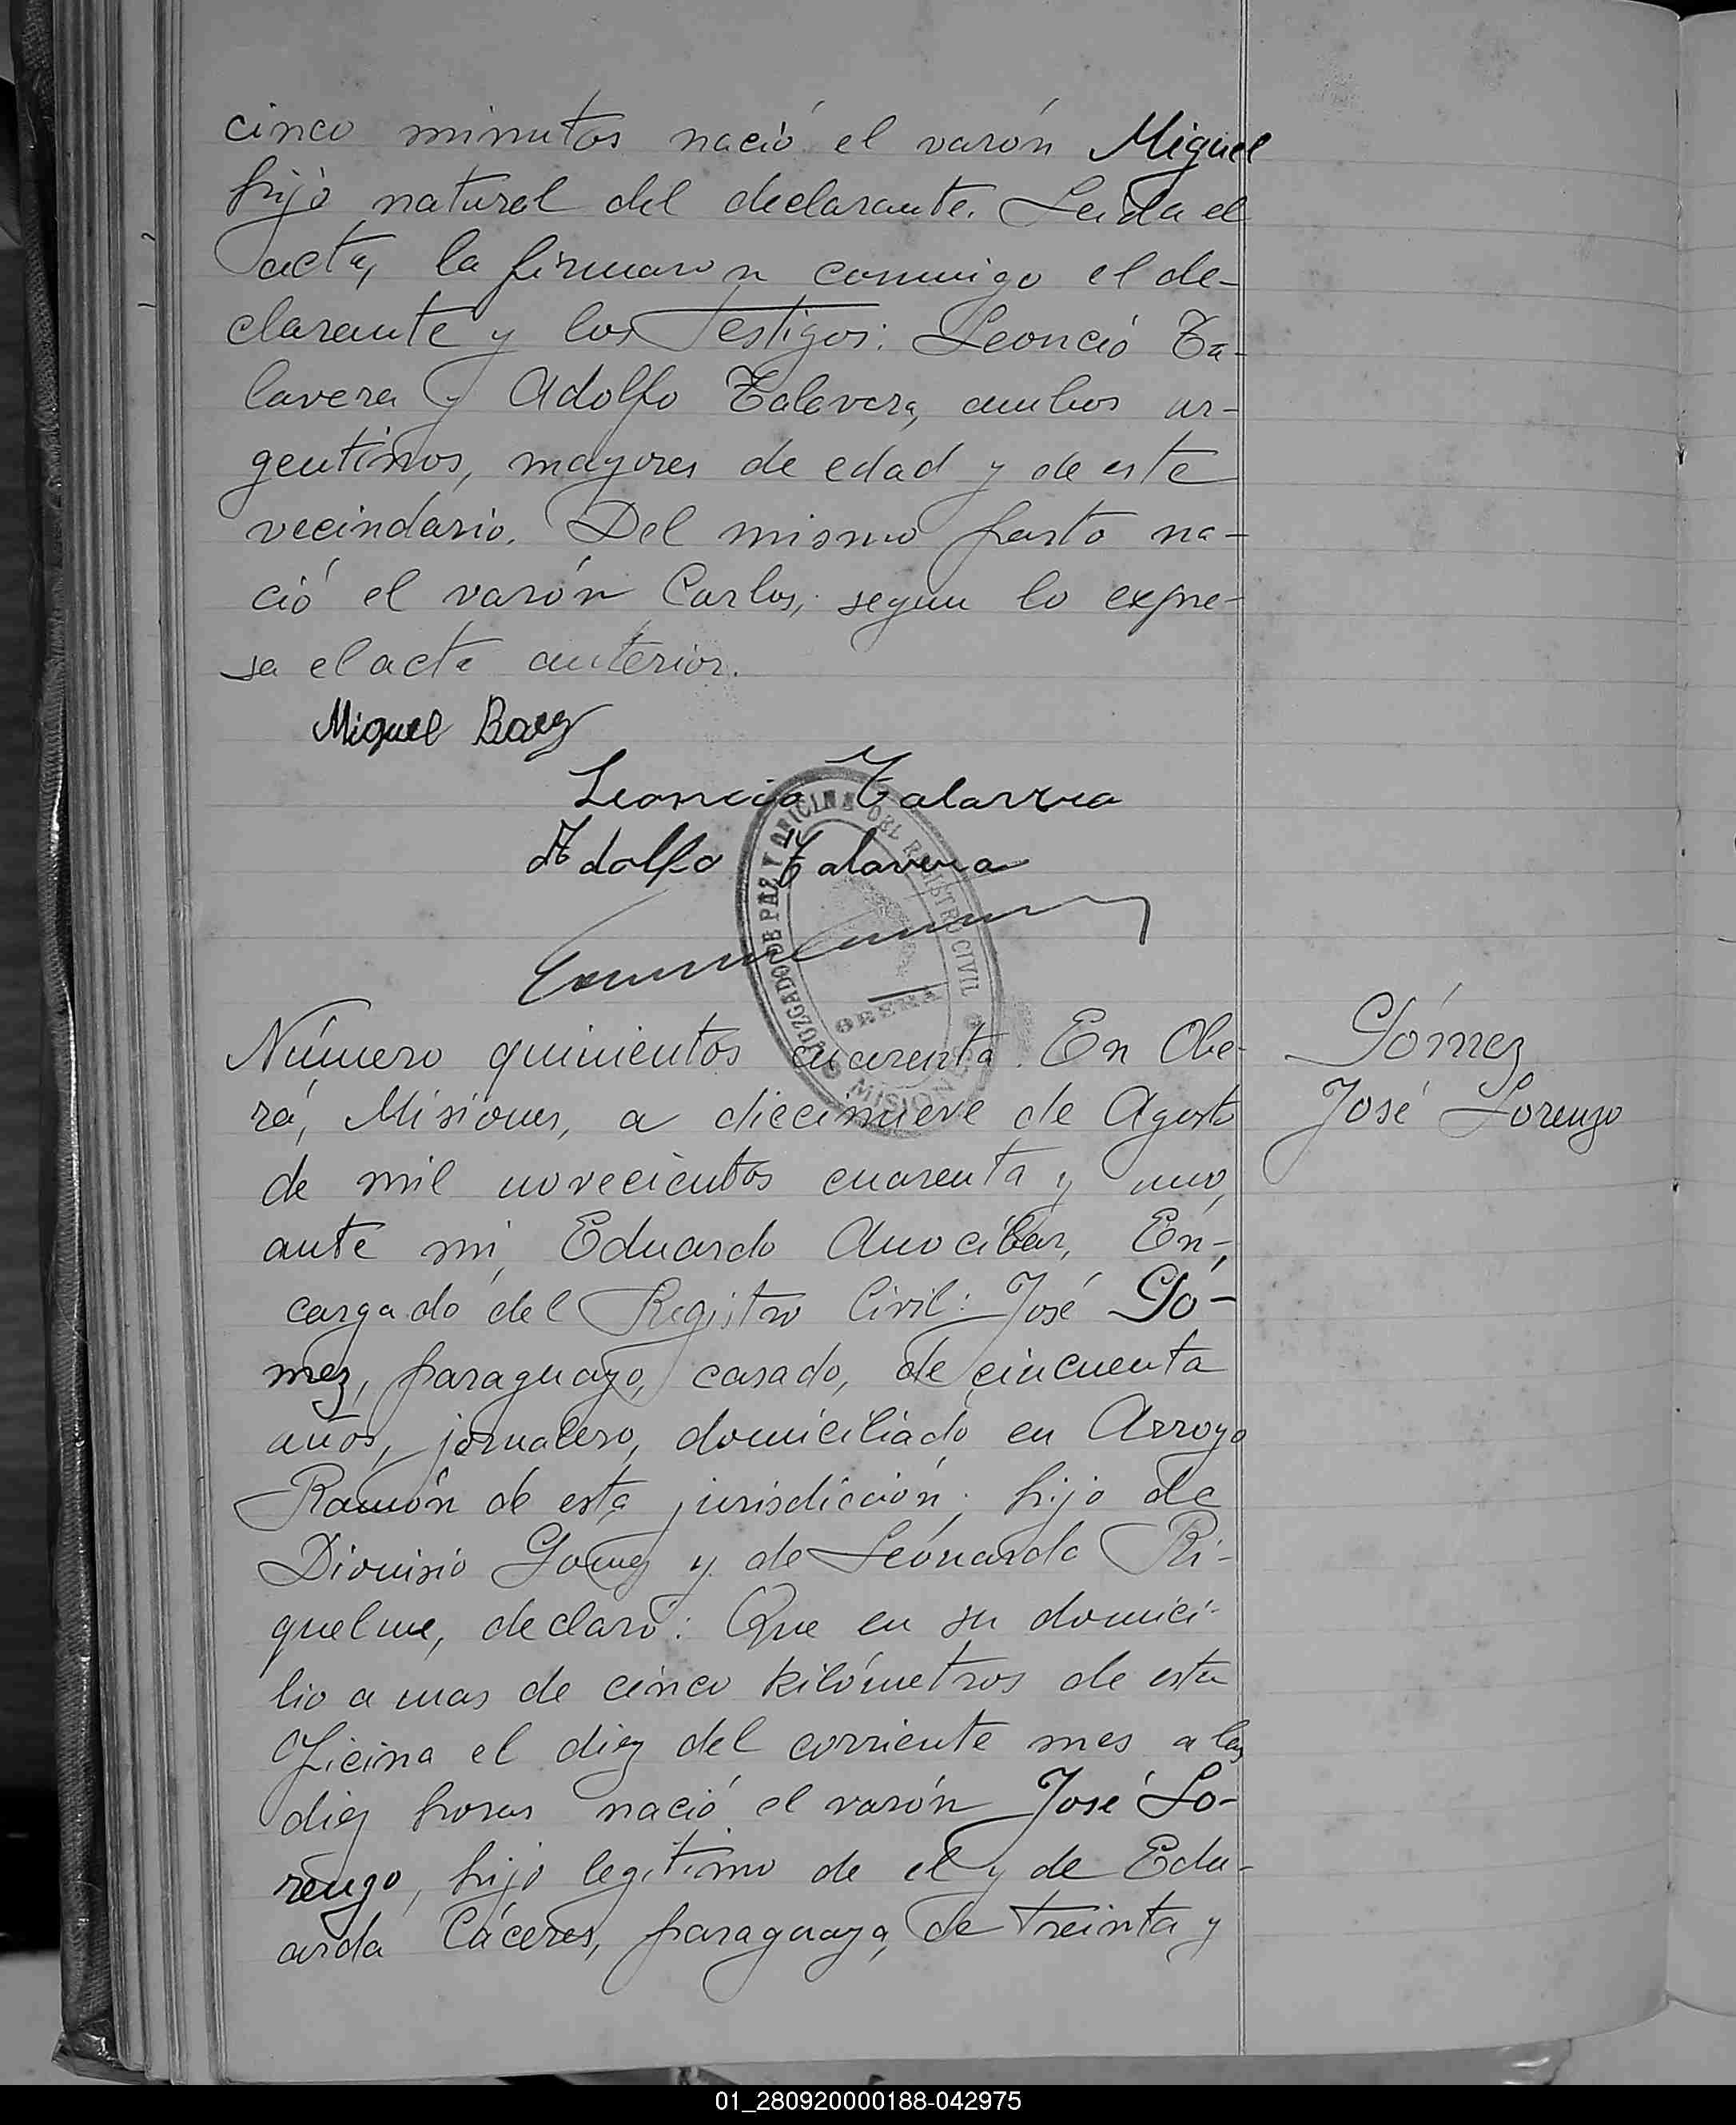 cinco minutos nació el varón Miguel
hijo natural del declarante. Leida el
acta, la firmaron conmigo el de-
clarante y los Testigos: Leoncio Ta-
lavera y Adolfo Talavera, ambos ar-
gentinos, mayores de edad y de este
vecindario. Del mismo parto na-
ció el varón Carlos, segun lo expre-
sa el acta anterior.
Miguel Baez
Leoncio Talavera
Adolfo Talavera
JUZGADO DE PAZ Y OFICINA DEL REGISTRO CIVIL
OBERA
MISIONES
Número quinientos cuarenta. En Obe-
rá, Misiones, a diecinueve de Agosto
de mil novecientos cuarenta y uno,
ante mi, Eduardo Anocibar, En-
cargado del Registro Civil: José Gó-
mez, paraguayo, casado, de cincuenta
años, jornalero, domiciliado en Arroyo
Ramón de esta jurisdicción, hijo de
Dionisio Gomez y de Leonarda Ri-
quelme, declaró: Que en su domici-
lio a mas de cinco kilómetros de esta
Oficina el diez del corriente mes a las
diez horas nació el varón José Lo-
renzo, hijo legitimo de el y de Edu-
arda Cáceres, paraguaya, de treinta y
Gómez
José Lorenzo
01_280920000188-042975